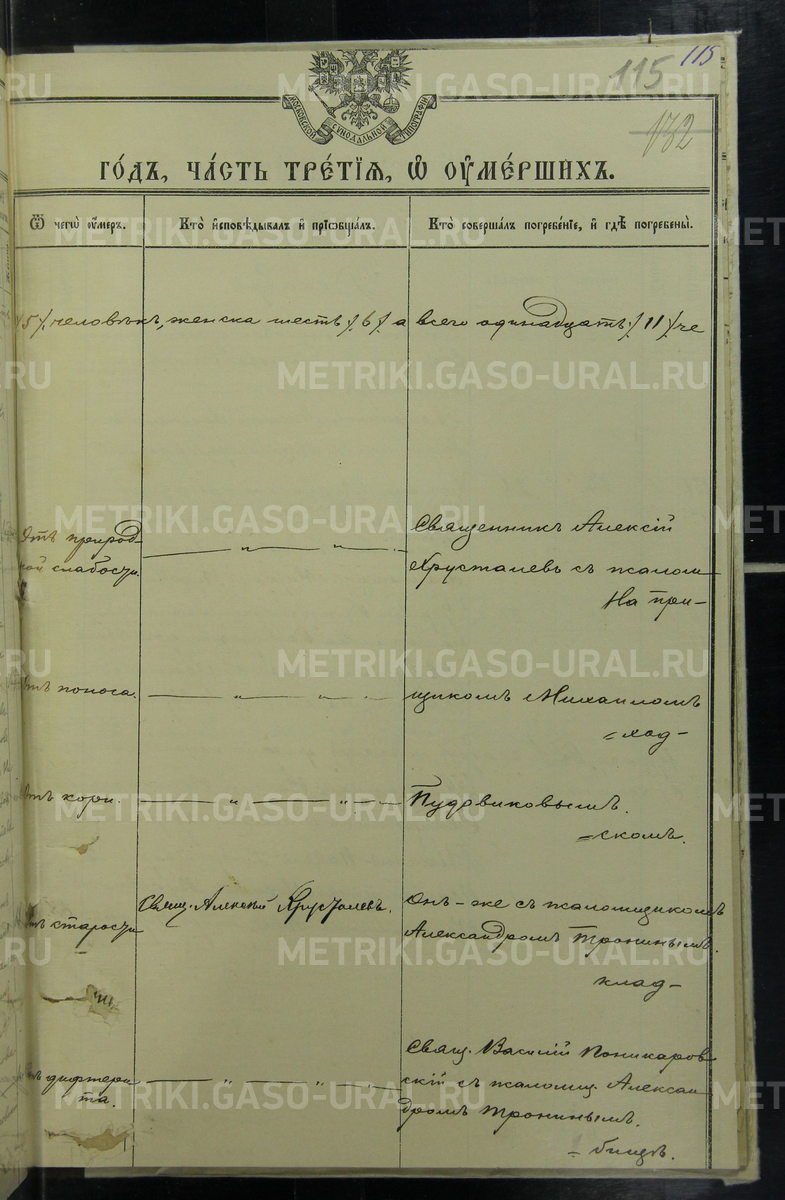 115
115
132
МОСКОВСКОЙ СѴНОДАЛЬНОЙ ТИПОГРАФІИ
ГО́ДЪ, ЧА́СТЬ ТРЕ́ТІѦ, Ѡ҆ ОУ҆МЕ́РШИХЪ.
Ѿ чегѡ̀ оу҆́меръ.
Кто̀ и҆сповѣ́дывалъ и҆ приѡбща́лъ.
Кто̀ соверша́лъ погребе́нїе, и҆ гдѣ̀ погребены̀.
/5/ человѣкъ, женска шесть /6/ а всего одинадцать /11/ че
Отъ природ-
ной слабости.
Священникъ Алексій
Хрусталевъ съ псалом
На при-
Отъ поноса.
щикомъ Михаиломъ
=ход-
Отъ кори.
Пудовиковымъ.
=скомъ.
Отъ старости
Свящ. Алексій Хрусталевъ.
Онъ-же съ псаломщикомъ
Александромъ Тронинымъ.
клад-
Отъ дифтери
та.
Свящ. Василій Поникаров
скій съ псаломщ. Алексан
дромъ Тронинымъ.
=бищѣ.
METRIKI.GASO-URAL.RU